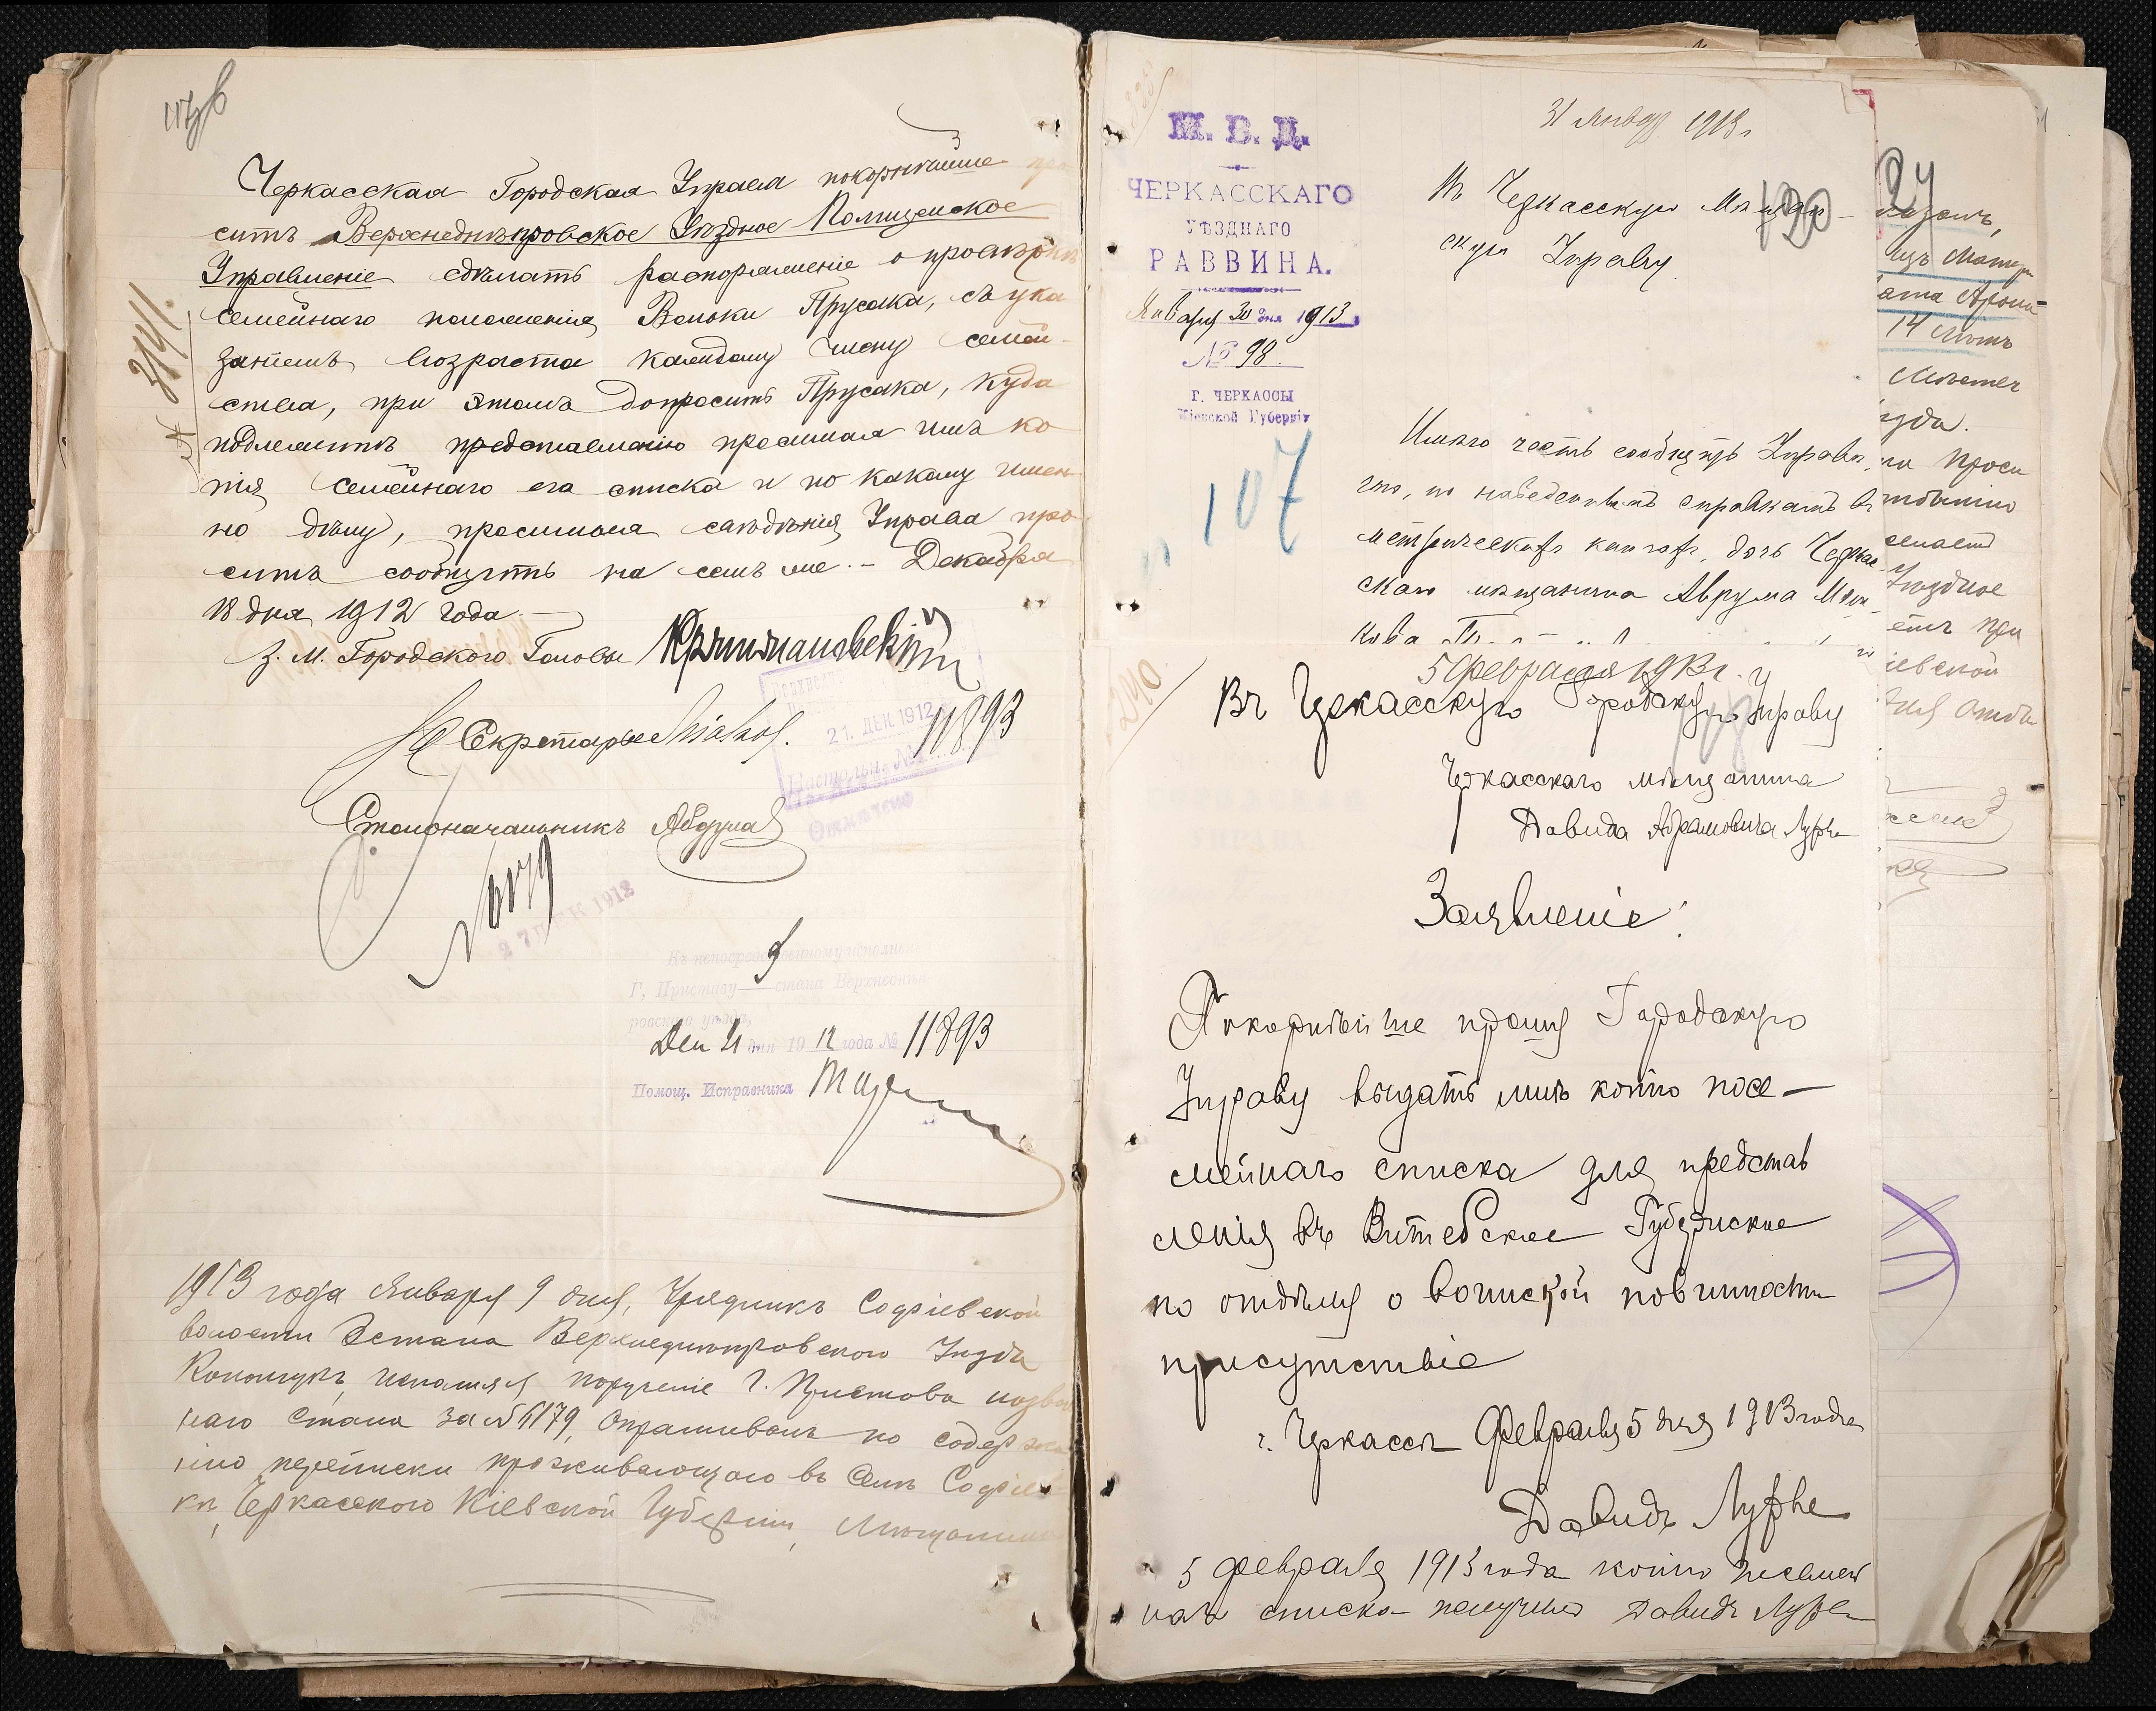 Черкасская Городская Управа покорнѣйше про
ситъ Верхнеднѣпровское Уѣздное Полицейское
Управленіе сдѣлать распоряженіе о провѣркѣ
семейнаго положенія Вольки Прусака, съ ука
заніемъ возраста каждому члену семей-
ства, при этомъ допросить Прусака, куда
подлежитъ представленію просимая имъ ко
пія семейнаго его списка и по какому имен
но дѣлу, просимыя свѣдѣнія Управа про
ситъ сообщить на семъ же. – Декабря
18 дня 1912 года
З. М. Городского Головы
Секретарь
21. ДЕК 1912
11893
Настольн. №
Отмѣчено
Столоначальникъ
№ 3141.
№ 6179
27 ДЕК 1912
Къ непосредственному исполне
Г. Приставу 3 стана Верхнеднѣп
ровскаго уѣзда,
Дек 21 дня 1912 года № 11893
Помощ. Исправника
1913 года Января 9 дня, Урядникъ Софіевской
волости 3 стана Верхнеднѣпровского Уѣзда
исполняя порученіе Г. Пристава
наго Стана за № 6179, опрашивалъ по содержа
нію переписки проживающаго въ Селѣ Софіев
кѣ, Черкасского Кіевской Губерніи, Мѣщанина
М. В. Д.
ЧЕРКАССКАГО
УѢЗДНАГО
РАВВИНА.
Января 30 дня 1913
№ 98.
Г. ЧЕРКАССЫ
Кіевской Губерніи
107
31 Января 1913 г
120
Въ Черкасскую Мѣщан-
скую Управу
Имѣю честь сообщить Управѣ,
что, по наведеннымъ справкамъ въ
метрическихъ книгахъ, дочь Черкас-
скаго мѣщанина Аврума
5 февраля 1913 г.
Въ Черкасскую Городскую Управу
Черкасскаго мѣщанина
Давида Абрамовича Лурье
Заявленіе.
Покорнѣйше прошу Городскую
Управу выдать мнѣ копію посе-
мейнаго списка для представ
ленія въ Витебское Губернское
по отдѣлу о воинской повинности
присутствіе
г. Черкассы Февраля 5 дня 1913 года
Давидъ Лурье
5 февраля 1913 года копію посемей
наго списка получилъ Давидъ Лурье
24
14 лѣтъ
Уѣздное